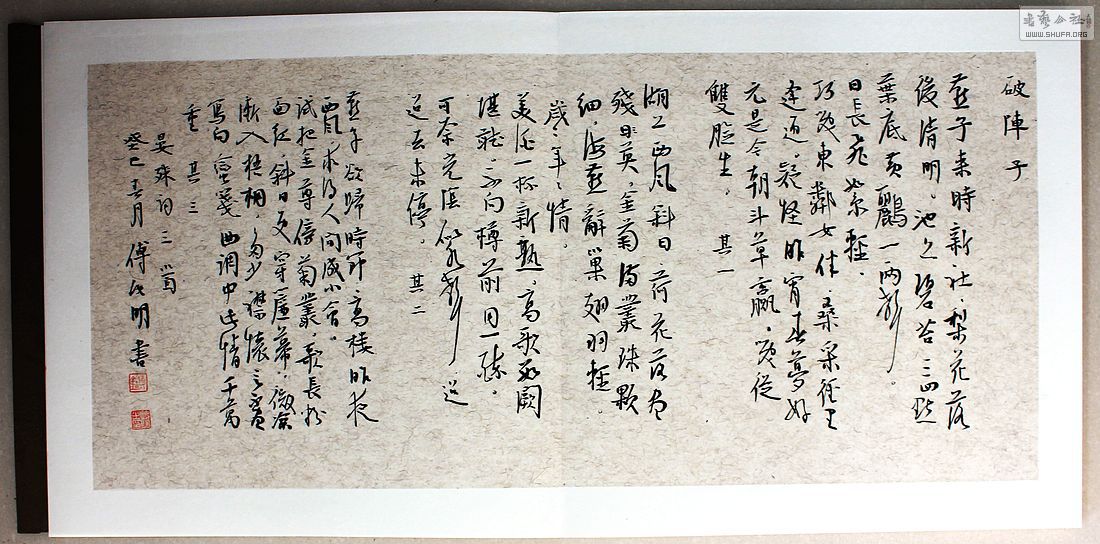 破陣子
燕子来時新社，梨花落
後清明。池上碧苔三四點
葉底黃鸝一兩聲。
日長飛絮輕，
巧笑東鄰女伴，桑采徑里
逢迎。疑怪昨宵春夢好
元是今朝斗草贏。笑從
雙臉生。 其一
湖上西風斜日，荷花落盡
殘英。金菊滿叢珠顆
細，海燕辭巢翅羽輕。
歲歲年年情。
美酒一杯新熟，高歌數闋
堪聽。不向樽前同一醉。
可奈光陰似水聲。迢
迢去未停。 其二
燕子欲歸時節，高樓昨夜
西風。求得人間成小會。
試把金尊傍菊叢。歌長粉
面紅。斜日更穿簾幕，微涼
漸入梧桐。多少襟懷言不盡
寫向蠻箋曲調中。此情千萬
重 其三
晏殊词三首
癸巳春月傅明書
書藝公社
WWW.SHUFA.ORG